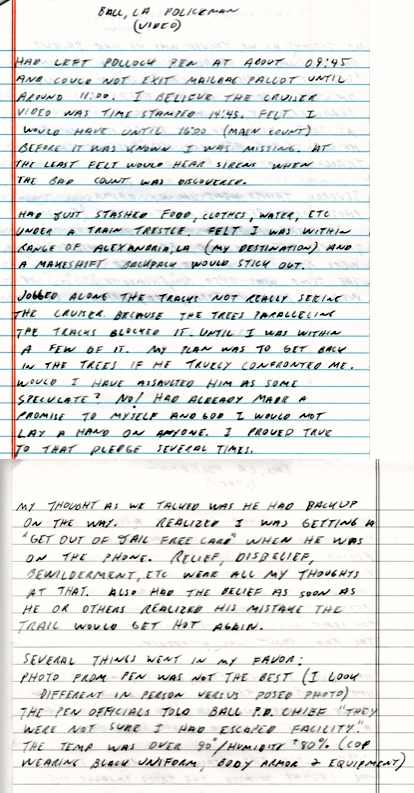 BALL, LA POLICEMAN
(VIDEO)
HAD LEFT POLLOCK PEN AT ABOUT 09:45
AND COULD NOT EXIT MAILBAG PALLOT UNTIL
AROUND 11:00. I BELIEVE THE CRUISER
VIDEO WAS TIME STAMPED 14:45. FELT I
WOULD HAVE UNTIL 16:00 (MAIN COUNT)
BEFORE IT WAS KNOWN I WAS MISSING. AT
THE LEAST FELT WOULD HEAR SIRENS WHEN
THE BAD COUNT WAS DISCOVERED.
HAD JUST STASHED FOOD, CLOTHES, WATER, ETC
UNDER A TRAIN TRESTLE. FELT I WAS WITHIN
RANGE OF ALEXANDRIA, LA (MY DESTINATION) AND
A MAKESHIFT BACKPACK WOULD STICK OUT.
JOGGED ALONG THE TRACKS NOT REALLY SEEING
THE CRUISER BECAUSE THE TREES PARALLELING
THE TRACKS BLOCKED IT UNTIL I WAS WITHIN
A FEW OF IT. MY PLAN WAS TO GET BACK
IN THE TREES IF HE TRULY CONFRONTED ME.
WOULD I HAVE ASSAULTED HIM AS SOME
SPECULATE? NO! HAD ALREADY MADE A
PROMISE TO MYSELF AND GOD I WOULD NOT
LAY A HAND ON ANYONE. I PROVED TRUE
TO THAT PLEDGE SEVERAL TIMES.
MY THOUGHT AS WE TALKED WAS HE HAD BACKUP
ON THE WAY. REALIZED I WAS GETTING A
"GET OUT OF JAIL FREE CARD" WHEN HE WAS
ON THE PHONE. RELIEF, DISBELIEF,
BEWILDERMENT, ETC WERE ALL MY THOUGHTS
AT THAT. ALSO HAD THE BELIEF AS SOON AS
HE OR OTHERS REALIZED HIS MISTAKE THE
TRAIL WOULD GET HOT AGAIN.
SEVERAL THINGS WENT IN MY FAVOR:
PHOTO FROM PEN WAS NOT THE BEST (I LOOK
DIFFERENT IN PERSON VERSUS POSED PHOTO)
THE PEN OFFICIALS TOLD BALL P.D. CHIEF "THEY
WERE NOT SURE I HAD ESCAPED FACILITY."
THE TEMP WAS OVER 90°/HUMIDITY +80% (COP
WEARING BLACK UNIFORM, BODY ARMOR & EQUIPMENT)